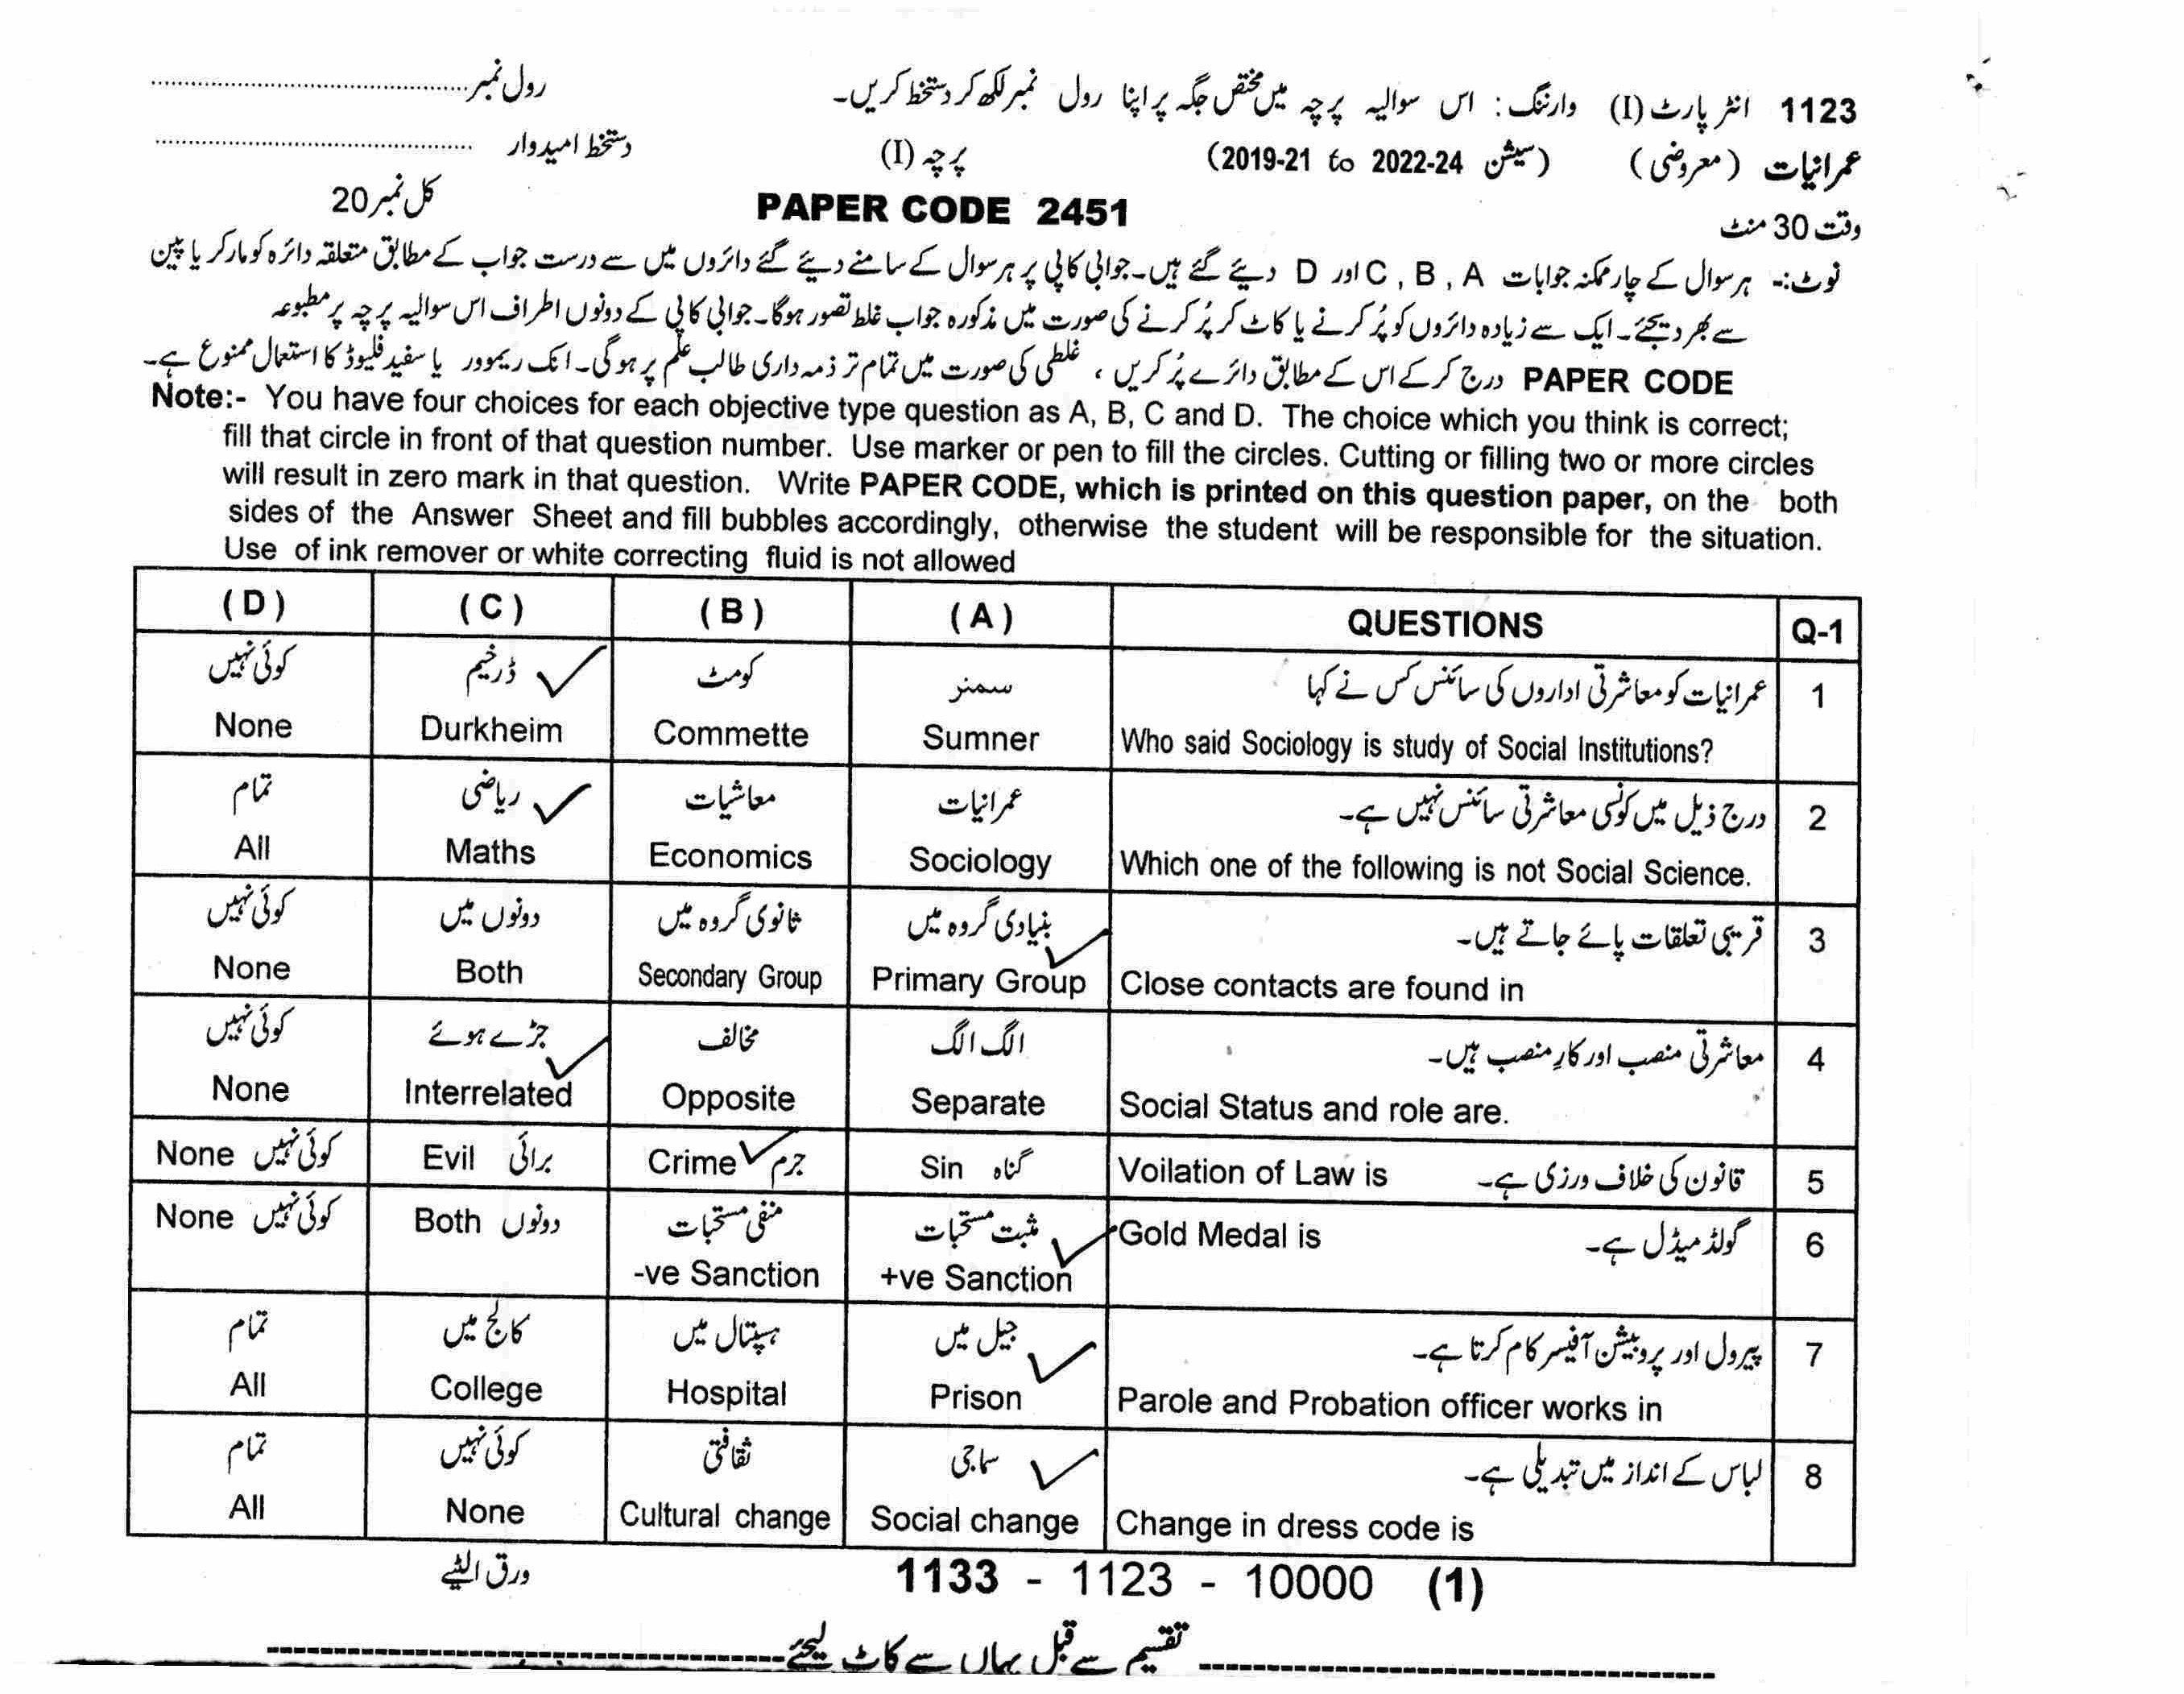 1123 انٹر پارٹ (I) وارننگ : اس سوالیہ پرچہ میں مختص جگہ پر اپنا رول نمبر لکھ کر دستخط کریں۔ رول نمبر
عمرانیات (معروضی) (سیشن 2022-24 to 2019-21) پرچہ (I) دستخط امیدوار
وقت 30 منٹ PAPER CODE 2451 کل نمبر 20
نوٹ:- ہر سوال کے چار ممکنہ جوابات A , B , C اور D دیئے گئے ہیں۔ جوابی کاپی پر ہر سوال کے سامنے دیئے گئے دائروں میں سے درست جواب کے مطابق متعلقہ دائرہ کو مارکر یا پین
سے بھر دیجئے۔ ایک سے زیادہ دائروں کو پُر کرنے یا کاٹ کر پُر کرنے کی صورت میں مذکورہ جواب غلط تصور ہوگا۔ جوابی کاپی کے دونوں اطراف اس سوالیہ پرچہ پر مطبوعہ
PAPER CODE درج کر کے اس کے مطابق دائرے پُر کریں ، غلطی کی صورت میں تمام تر ذمہ داری طالب علم پر ہوگی۔ انک ریموور یا سفید فلیوڈ کا استعمال ممنوع ہے۔
Note:- You have four choices for each objective type question as A, B, C and D. The choice which you think is correct;
fill that circle in front of that question number. Use marker or pen to fill the circles. Cutting or filling two or more circles
will result in zero mark in that question. Write PAPER CODE, which is printed on this question paper, on the both
sides of the Answer Sheet and fill bubbles accordingly, otherwise the student will be responsible for the situation.
Use of ink remover or white correcting fluid is not allowed
(D) (C) (B) (A) QUESTIONS Q-1
1 عمرانیات کو معاشرتی اداروں کی سائنس کس نے کہا سمنر کومٹ ڈرخیم کوئی نہیں
None Durkheim Commette Sumner Who said Sociology is study of Social Institutions?
2 درج ذیل میں کونسی معاشرتی سائنس نہیں ہے۔ عمرانیات معاشیات ریاضی تمام
All Maths Economics Sociology Which one of the following is not Social Science.
3 قریبی تعلقات پائے جاتے ہیں۔ بنیادی گروہ میں ثانوی گروہ میں دونوں میں کوئی نہیں
None Both Secondary Group Primary Group Close contacts are found in
4 معاشرتی منصب اور کارِ منصب ہیں۔ الگ الگ مخالف جڑے ہوئے کوئی نہیں
None Interrelated Opposite Separate Social Status and role are.
None کوئی نہیں Evil برائی Crime جرم Sin گناہ Voilation of Law is قانون کی خلاف ورزی ہے۔ 5
None کوئی نہیں Both دونوں منفی مستحبات مثبت مستحبات Gold Medal is گولڈ میڈل ہے۔ 6
-ve Sanction +ve Sanction
7 پیرول اور پروبیشن آفیسر کام کرتا ہے۔ جیل میں ہسپتال میں کالج میں تمام
All College Hospital Prison Parole and Probation officer works in
8 لباس کے انداز میں تبدیلی ہے۔ سماجی ثقافتی کوئی نہیں تمام
All None Cultural change Social change Change in dress code is
ورق الٹیے 1133 - 1123 - 10000 (1)
تقسیم سے قبل یہاں سے کاٹ لیجئے